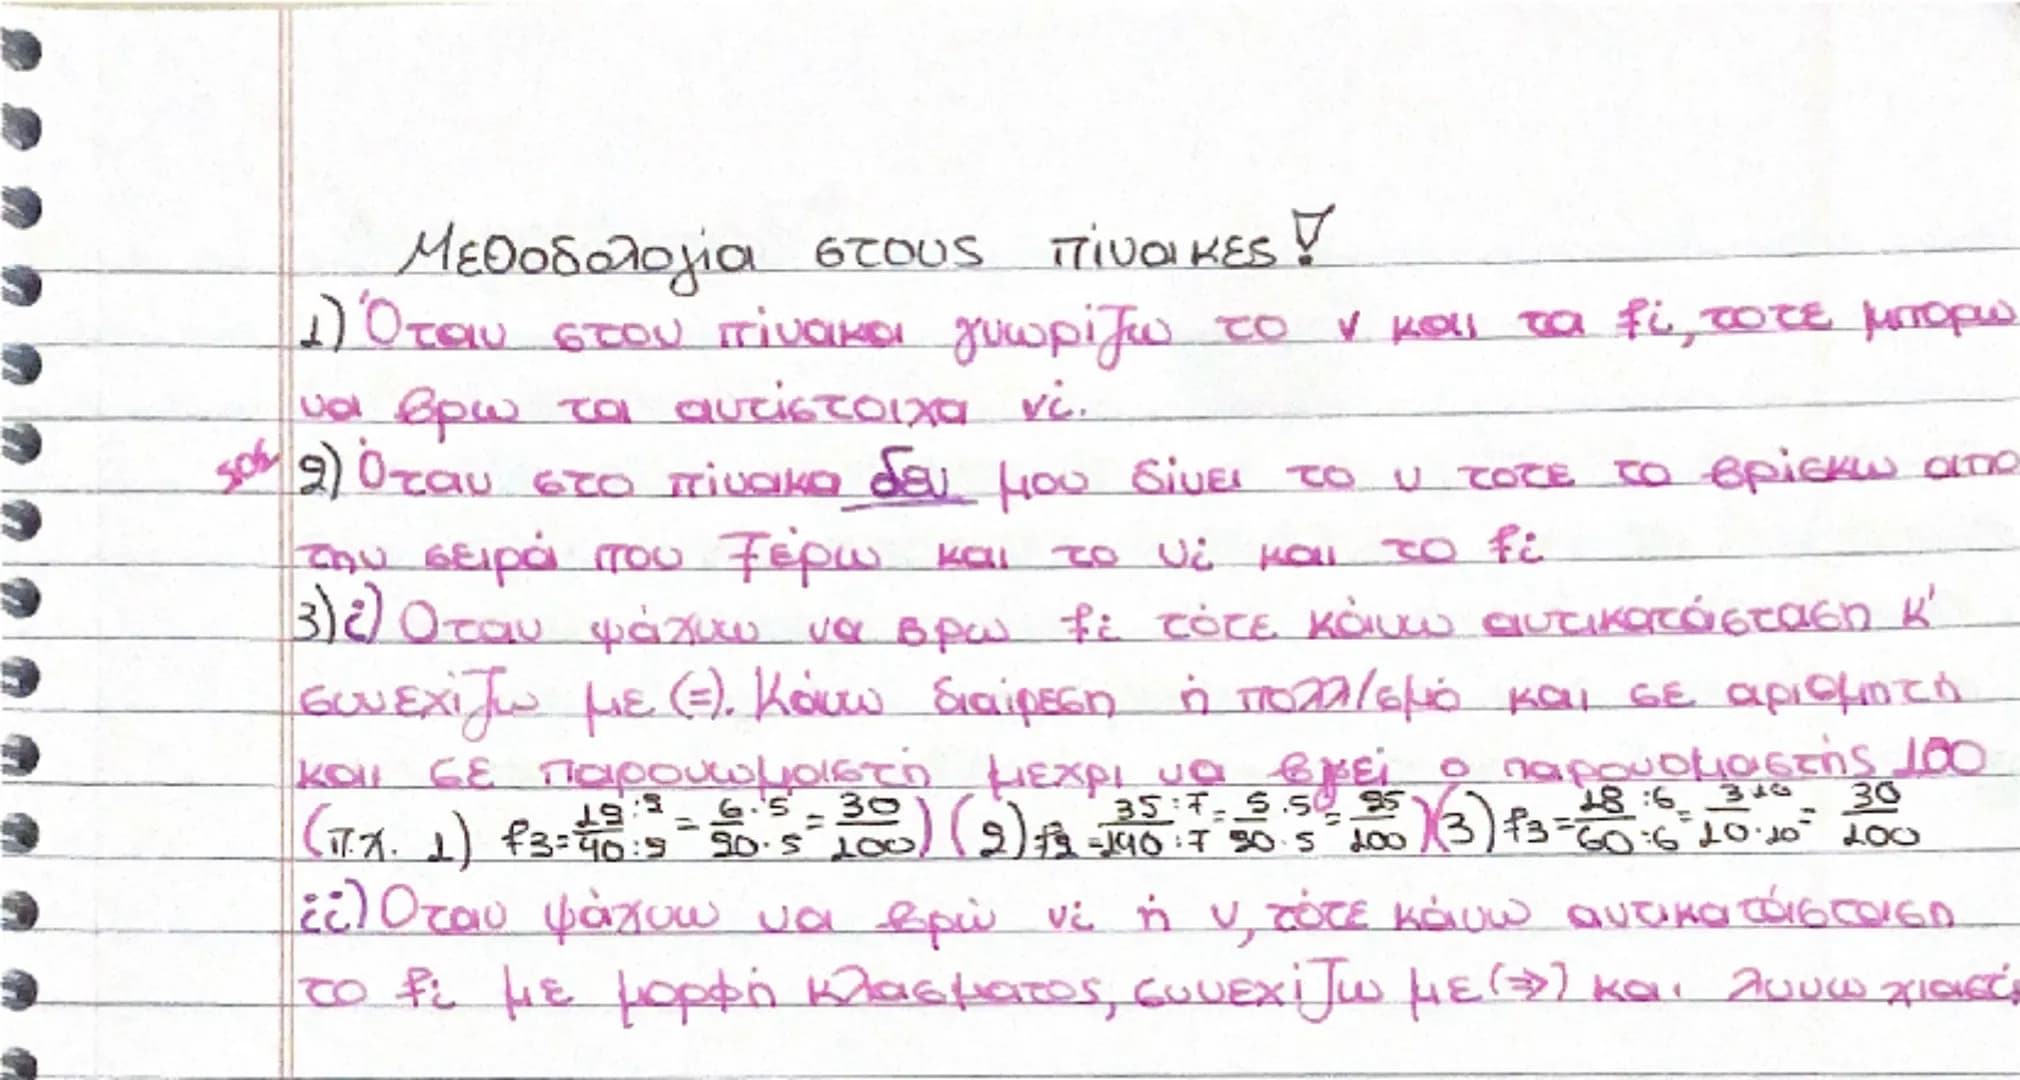 Μεθοδολογία στους πίνακες!
1) Όταν στον πίνακα γνωρίζω το ν και τα fi, τοτε μπορω
να βρω τα αντίστοιχα νi.
sos 2) Όταν στο πίνακα δεν μου δίνει το ν τοτε το βρίσκω απο
την σειρά που ξέρω και το νi και το fi
3) i) Οταν ψάχνω να βρω fi τότε κάνω αντικατάσταση κ'
συνεχίζω με (=). Κάνω διαίρεση ή πολλ/σμό και σε αριθμητή
και σε παρονομαστή μεχρι να βγεί ο παρονομαστής 100
(π.χ. 1) f3=12:2/40:2=6·5/20·5=30/100) (2) f2=35:7/140:7=5·5/20·5=25/100) (3) f3=18:6/60:6=3·10/10·10=30/100
ii) Οταν ψάχνω να βρώ νi ή ν, τότε κάνω αντικατάσταση
το fi με μορφή κλασματος, συνεχίζω με (⇒) και λυνω χιαστί